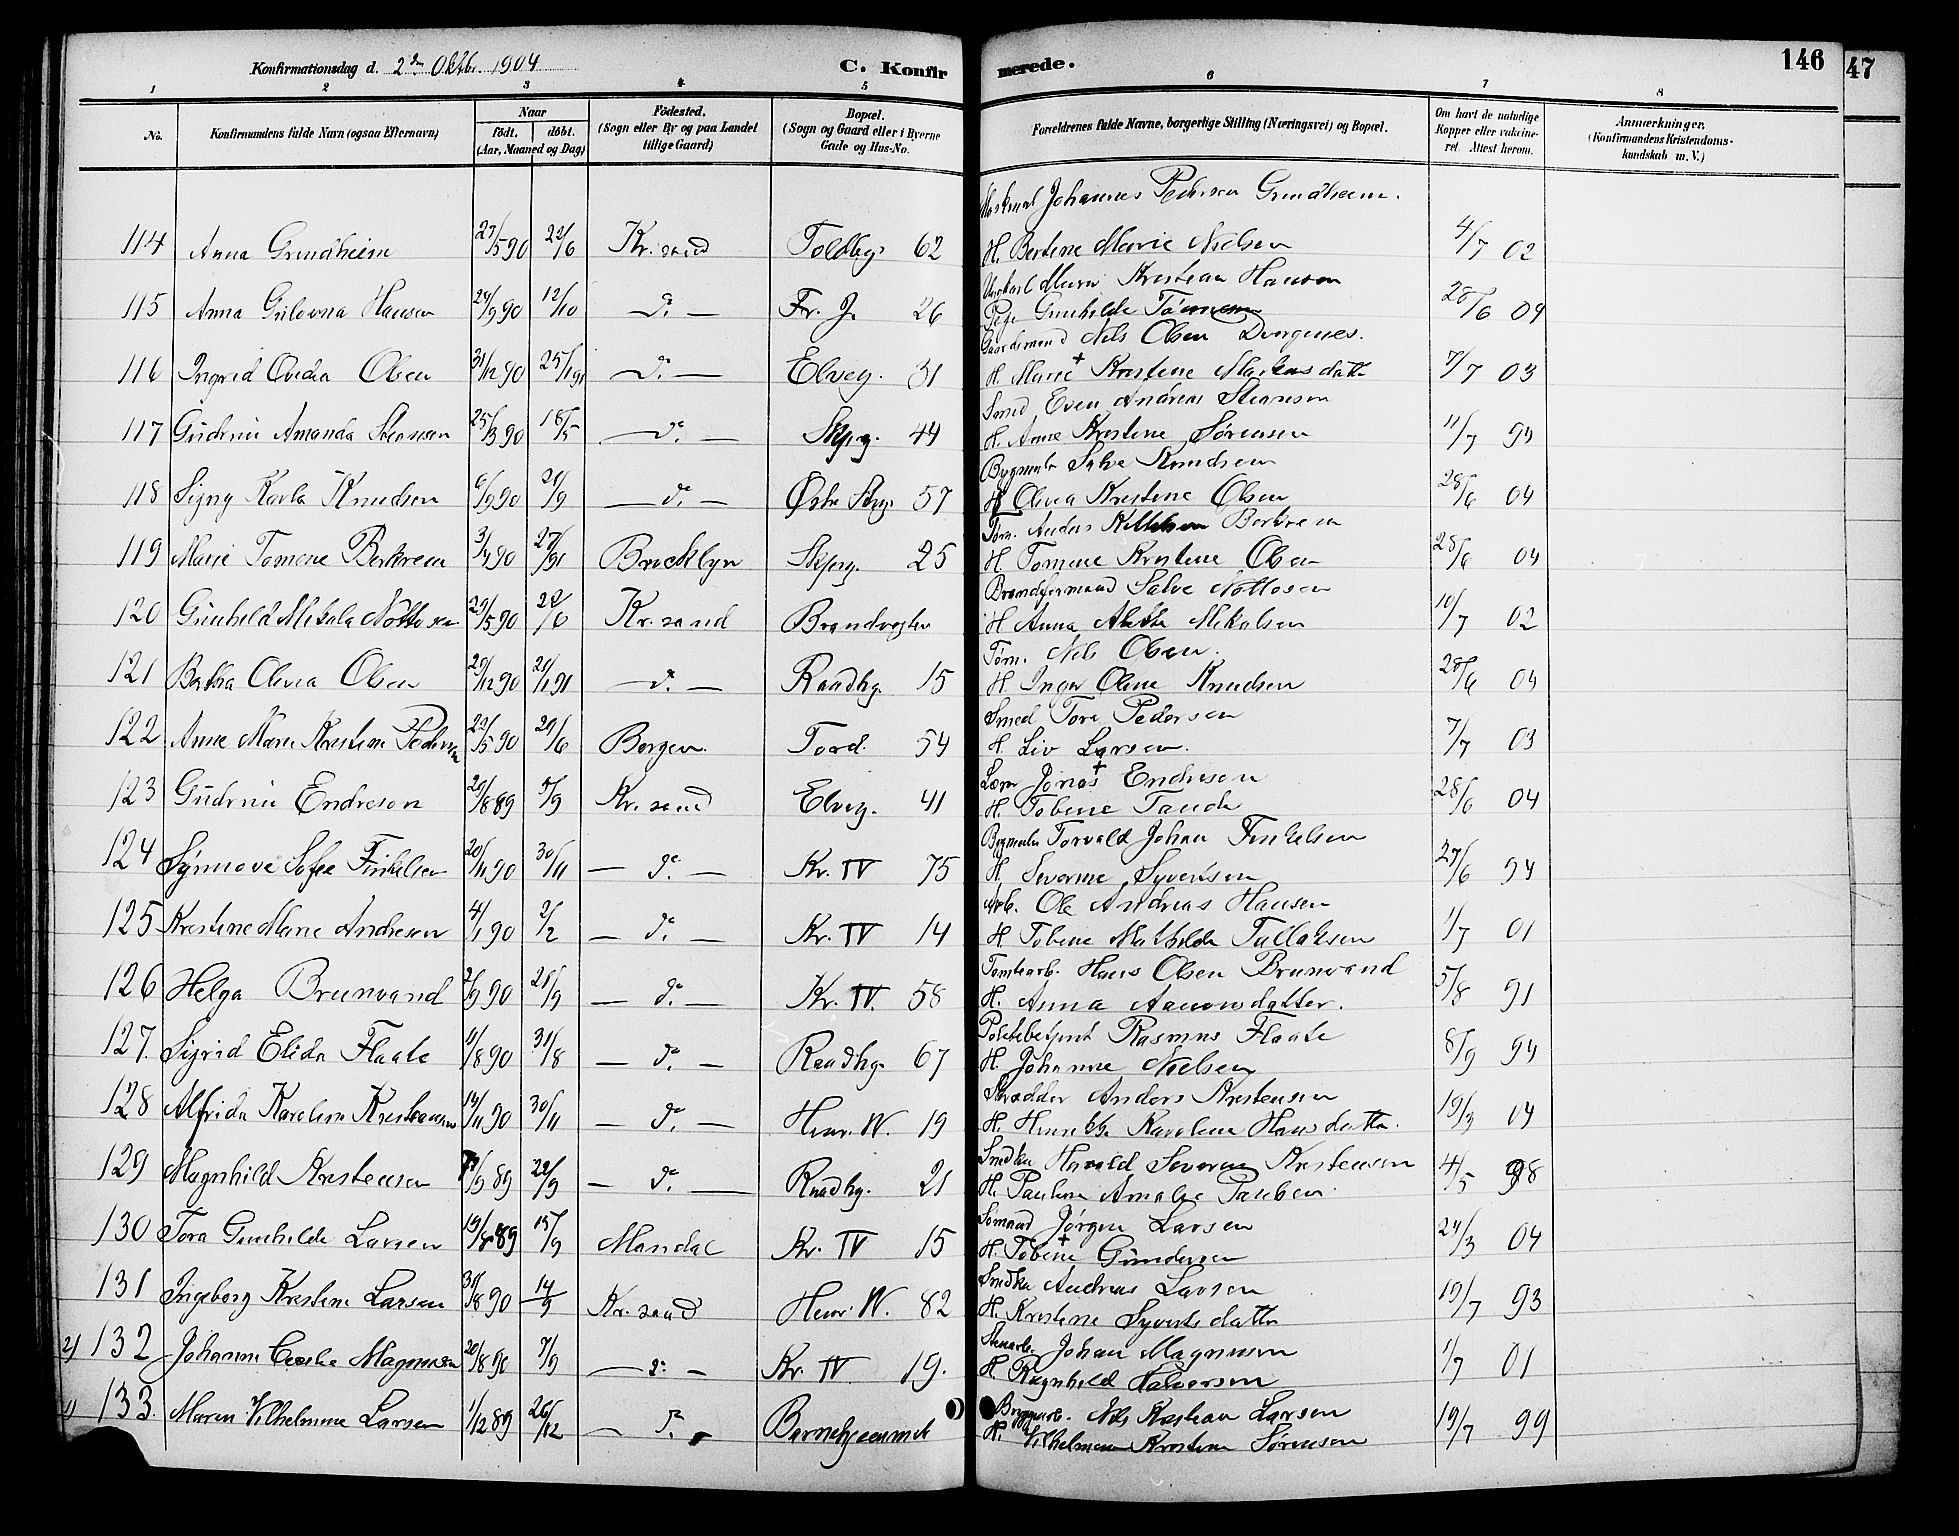 Konfirmationsdag d. 2den Oktbr. 1904
C. Konfirmerede.
146
47
1 2 3 4 5 6 7 8
No.
Konfirmandens fulde Navn (ogsaa Efternavn)
Naar
født. døbt.
(Aar, Maaned og Dag)
Fødested.
(Sogn eller By og paa Landet tillige Gaard)
Bopæl.
(Sogn og Gaard eller i Byerne Gade og Hus-No.
Forældrenes fulde Navne, borgerlige Stilling (Næringsvei) og Bopæl.
Om havt de naturlige Kopper eller vakcineret. Attest herom.
Anmærkninger.
(Konfirmandens Kristendomskundskab m. V.)
Johannes Pedersen Grundheim.
114 Anna Grundheim 27/5 90 22/6 Kr.sand Toldbg. 62 H. Bertine Marie Nielsen 4/7 02
Kristian Hansen
115 Anna Hansen 24/9 90 12/10 do. Fr. J. 26 Pige Gunhilde 28/6 04
Gaardmand Nils Olsen
116 Ingrid Olsen 31/12 90 25/1 91 do. Elveg. 31 H. Marie + Kristine 7/7 03
Smed Even Andreas Stensen
117 Gudrun Amanda Stensen 25/3 90 18/5 do. Skipg. 44 H. Anne Kristine Sørensen 11/7
Salve Knudsen
118 Signy Karla Knudsen 6/9 90 21/9 do. Østre Strg. 57 H. Olivia Kristine Olsen 28/6 04
Anders Berkrem
119 Marie Tomene Berkrem Brucklyn Skipg. 25 H. Tomene Kristine Olsen 28/6 04
Brandformand Salve Nottosen
120 Gunhild Mikala Nottosen 29/5 90 22/6 Kr.sand Brandvagten H. Anna Mikalsen 10/7 02
Tøm. Nils Olsen.
121 Olivia Olsen 29/12 90 do. Raadhg. 15 H. Inger Oline Knudsen 28/6 04
Smed Tore Pedersen
122 Anne Marie Kristine Pedersen 22/5 90 29/6 Bergen. Tord. 54 H. Liv Larsen. 7/7 03
Jonas + Endresen
123 Gudrun Endresen 29/8 89 Kr.sand Elveg. 41 H. Tobine 28/6 04
Torvald Johan Finkelsen
124 Synnove Sofie Finkelsen 20/11 90 30/11 do. Kr. IV 75 H. Severine Syvertsen 27/6 94
Arb. Ole Andreas Hansen
125 Kristine Marie Andresen 4/1 90 2/2 do. Kr. IV 14 H. Tobine Mathilde Tallaksen 1/7 01
Tomtearb. Hans Olsen Brunvand
126 Helga Brunvand 2/9 90 28/9 do. Kr. IV. 58 H. Anna Aanonsdatter. 5/8 91
Politibetjent Rasmus Flaate
127. Sigrid Elida Flaate 11/8 90 31/8 do. Raadhg. 67 H. Johanne Nielsen 8/9 94
Skrædder Anders Kristensen
128 Alfrida Karoline Kristensen 14/11 90 30/11 do. Henr. W. 19 H. Karoline Hansdatter. 19/3 04
Harald Severin Kristensen
129 Magnhild Kristensen 22/9 do. Raadhg. 21 H. Pauline Amalie 4/5 98
Sømand Jørgen Larsen
130 Tora Gunhilde Larsen 19/8 89 15/9 Mandal Kr. IV 15 H. Tobine + Gundersen 24/3 04
Andreas Larsen
131 Ingeborg Kristine Larsen 31/8 90 14/9 Kr.sand Henr. W. 82 H. Kristine Syvertsdatter 19/7 93
Johan Magnusen
2) 132 Johanne Magnusen 20/8 90 7/9 do. Kr. IV. 19. H. Ragnhild Halvorsen 1/7 01
Nils Kristian Larsen
1) 133. Maren Vilhelmine Larsen 1/12 89 26/12 do. Barnehjemmet H. Vilhelmine Kristine Sørensen 19/7 99